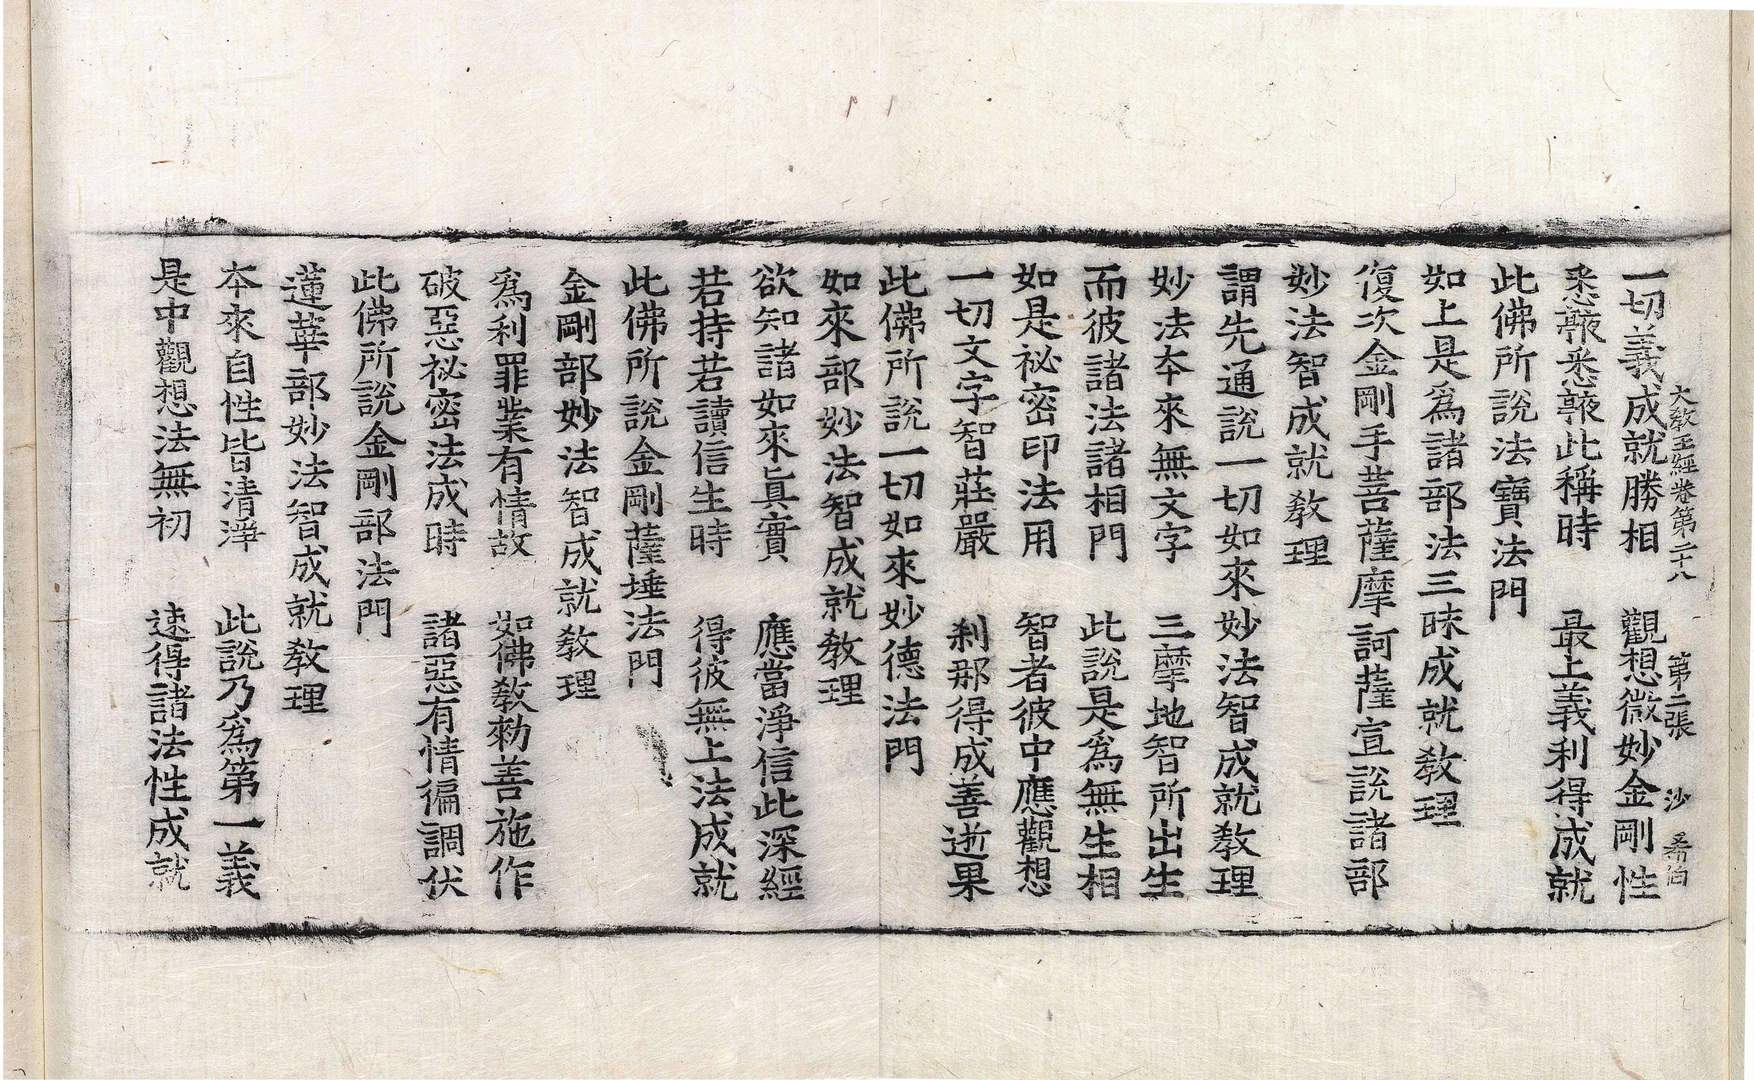 大敎王經卷第二十八 第二張 沙 希伯
一切義成就勝相 觀想微妙金剛性
悉𡁠悉𡁠此稱時 最上義利得成就
此佛所說法寶法門
如上是爲諸部法三昧成就敎理
復次金剛手菩薩摩訶薩宣說諸部
妙法智成就敎理
謂先通說一切如來妙法智成就敎理
妙法本來無文字 三摩地智所出生
而彼諸法諸相門 此說是爲無生相
如是祕密印法用 智者彼中應觀想
一切文字智莊嚴 剎那得成善逝果
此佛所說一切如來妙德法門
如來部妙法智成就敎理
欲知諸如來眞實 應當淨信此深經
若持若讀信生時 得彼無上法成就
此佛所說金剛薩埵法門
金剛部妙法智成就敎理
爲利罪業有情故 如佛敎勑善施作
破惡祕密法成時 諸惡有情徧調伏
此佛所說金剛部法門
蓮華部妙法智成就敎理
本來自性皆清淨 此說乃爲第一義
是中觀想法無初 速得諸法性成就